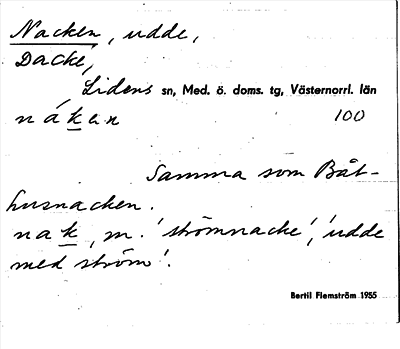 Nacken, udde,
Dacke,
Lidens sn, Med. ö. doms. tg, Västernorrl. län
náken 100
Samma som Båt-
husnacken.
nak, m. 'strömnacke', 'udde
med ström'.
Bertil Flemström 1955